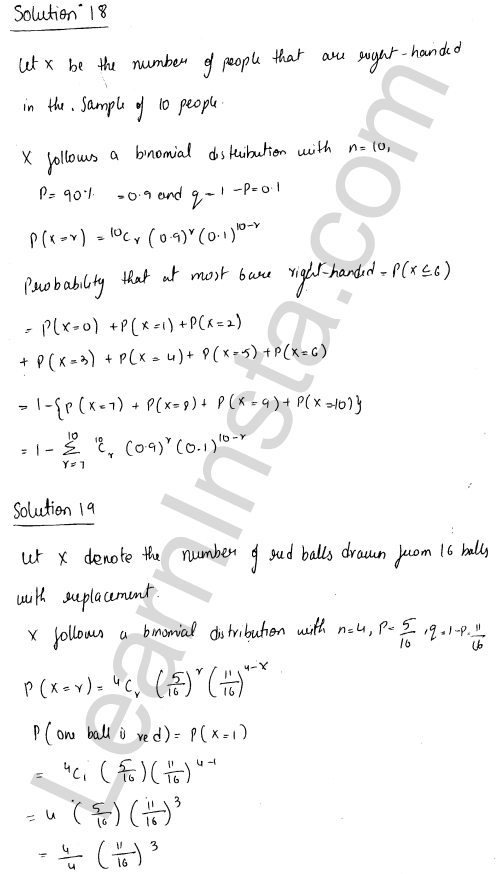 Solution 18
Let X be the number of people that are right-handed
in the. Sample of 10 people.
X follows a binomial distribution with n=10,
P= 90% =0.9 and q = 1-P=0.1
P(x=r) = ¹⁰Cᵣ (0.9)ʳ (0.1)¹⁰⁻ʳ
Probability that at most 6 are right-handed = P(X≤6)
= P(x=0) + P(x=1) + P(x=2)
+ P(x=3) + P(x=4) + P(x=5) + P(x=6)
= 1-{P(x=7) + P(x=8) + P(x=9) + P(x=10)}
= 1 - Σ_{r=7}^{10} ¹⁰Cᵣ (0.9)ʳ (0.1)¹⁰⁻ʳ
Solution 19
Let X denote the number of red balls drawn from 16 balls
with replacement.
X follows a binomial distribution with n=4, P= 5/16, q=1-P= 11/16
P(x=r) = ⁴Cᵣ (5/16)ʳ (11/16)⁴⁻ˣ
P(one ball is red) = P(x=1)
= ⁴C₁ (5/16) (11/16)⁴⁻¹
= 4 (5/16) (11/16)³
= 4/4 (11/16)³
LearnInsta.com